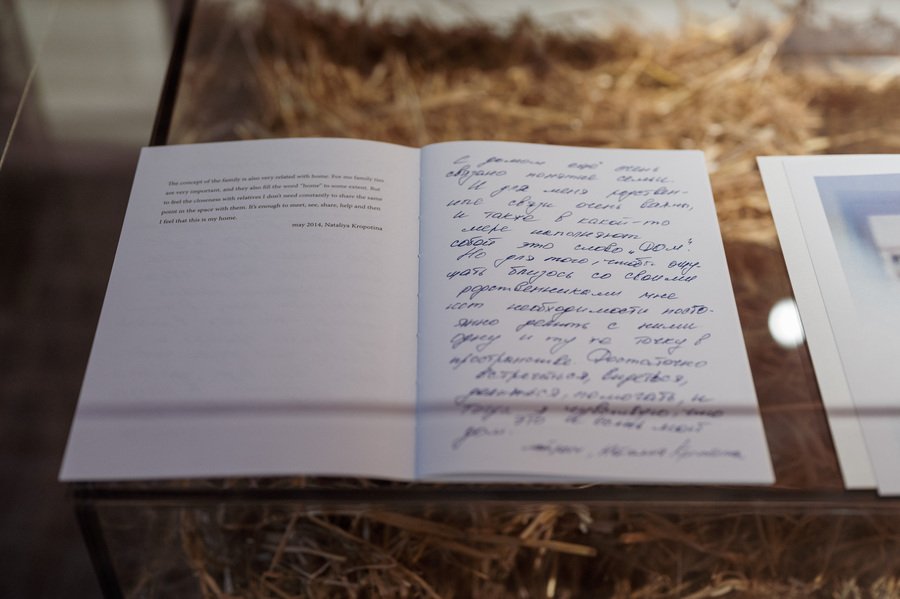 The concept of the family is also very related with home. For me family ties
are very important, and they also fill the word "home" to some extent. But
to feel the closeness with relatives I don't need constantly to share the same
point in the space with them. It's enough to meet, see, share, help and then
I feel that this is my home.
may 2014, Nataliya Kropotina
С домом ещё очень
связано понятие семьи.
И для меня родствен-
ные связи очень важны,
и также в какой-то
мере наполняют
собой это слово „Дом".
Но для того, чтобы ощу
щать близость со своими
родственниками мне
нет необходимости посто-
янно делить с ними
одну и ту же точку в
пространстве Достаточно
встречаться, видеться,
делиться, помогать, и
тогда я чувствую, что
это и есть мой
дом.
Наталия Кропотина